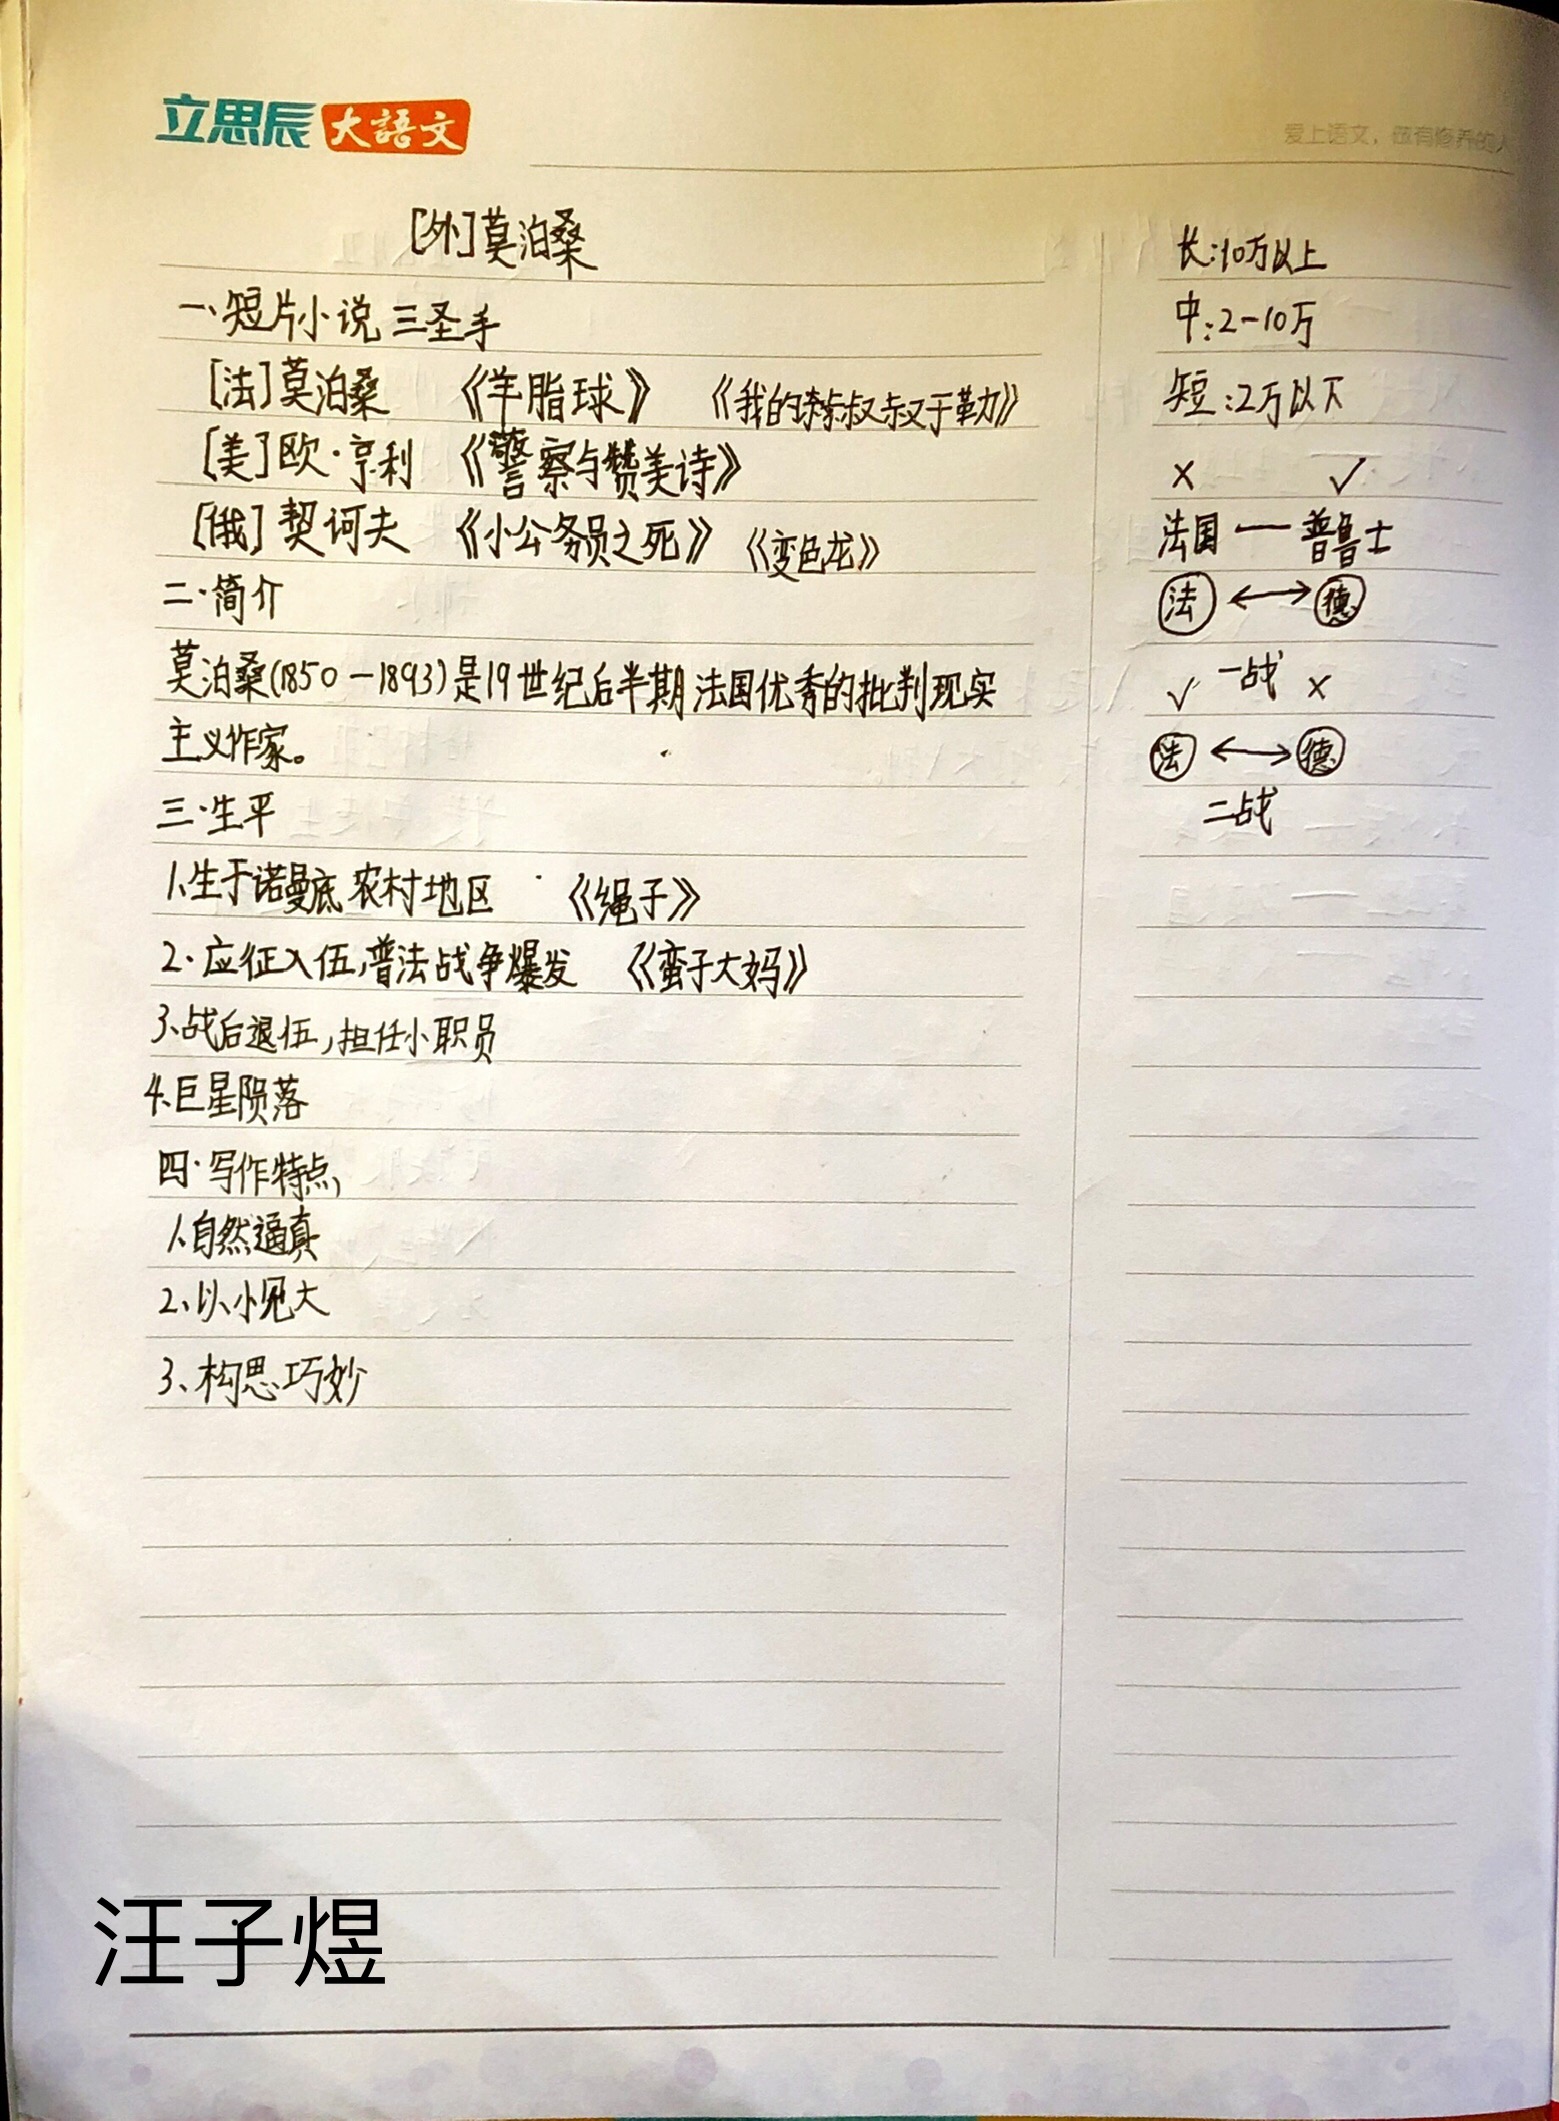 立思辰大語文
爱上语文，做有修养的人
[外]莫泊桑
一、短片小说三圣手
[法]莫泊桑 《羊脂球》 《我的叔叔于勒》
[美]欧·亨利 《警察与赞美诗》
[俄]契诃夫 《小公务员之死》 《变色龙》
二·简介
莫泊桑(1850-1893)是19世纪后半期法国优秀的批判现实
主义作家。
三·生平
1、生于诺曼底农村地区 《绳子》
2·应征入伍,普法战争爆发 《蛮子大妈》
3、战后退伍,担任小职员
4、巨星陨落
四·写作特点
1、自然逼真
2、以小见大
3、构思巧妙
长:10万以上
中:2-10万
短:2万以下
× ✓
法国 — 普鲁士
法 ↔ 德
✓ 一战 ×
法 ↔ 德
二战
汪子煜